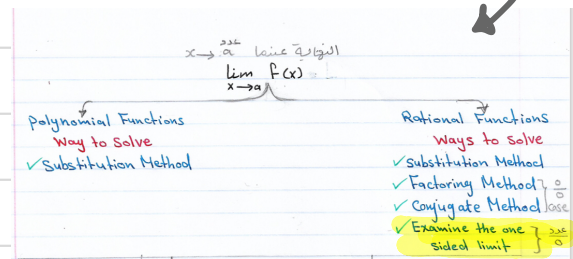 النهاية عندما x→a عدد
lim f(x)
x→a
Polynomial Functions
Way to Solve
✓ Substitution Method
Rational Functions
Ways to Solve
✓ substitution Method
✓ Factoring Method
✓ Conjugate Method
0/0 case
✓ Examine the one sided limit
عدد/0